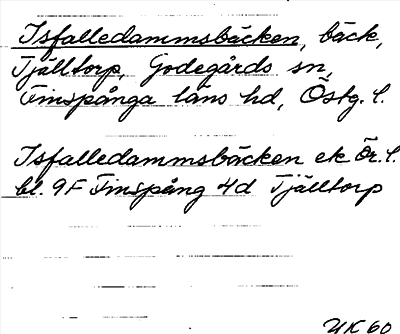 Isfalledammsbäcken, bäck,
Tjälltorp, Godegårds sn,
Finspånga läns hd, Östg. l.
Isfalledammsbäcken ek Ör. l.
bl. 9F Finspång 4d Tjälltorp
UK 60